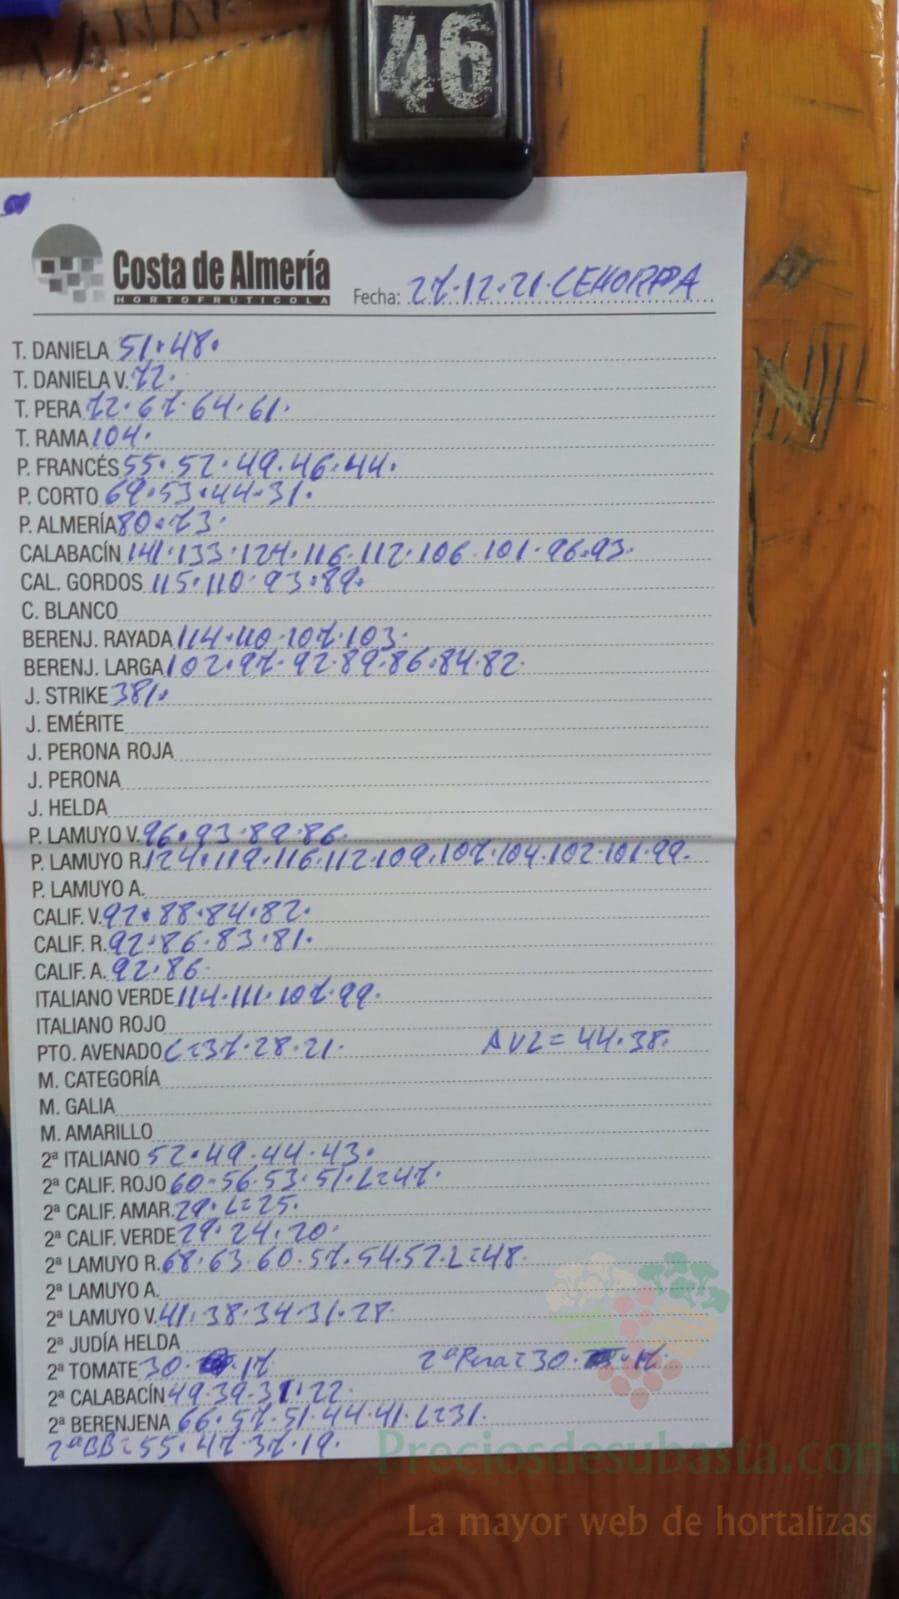 46
Costa de Almería
HORTOFRUTICOLA
Fecha: 27.12.21. CEHORPA
T. DANIELA 51.48.
T. DANIELA V. 72.
T. PERA 72.67.64.61.
T. RAMA 104.
P. FRANCÉS 55.52.49.46.44.
P. CORTO 69.53.44.31.
P. ALMERÍA 80.73.
CALABACÍN 141.133.124.116.112.106.101.96.93.
CAL. GORDOS 115.110.93.89.
C. BLANCO
BERENJ. RAYADA 114.110.107.103.
BERENJ. LARGA 102.97.92.89.86.84.82.
J. STRIKE 381.
J. EMÉRITE
J. PERONA ROJA
J. PERONA
J. HELDA
P. LAMUYO V. 96.93.89.86.
P. LAMUYO R. 124.119.116.112.109.107.104.102.101.99.
P. LAMUYO A.
CALIF. V. 92.88.84.82.
CALIF. R. 92.86.83.81.
CALIF. A. 92.86.
ITALIANO VERDE 114.111.107.99.
ITALIANO ROJO
PTO. AVENADO C=37.28.21. AVL=44.38.
M. CATEGORÍA
M. GALIA
M. AMARILLO
2ª ITALIANO 52.49.44.43.
2ª CALIF. ROJO 60.56.53.51.L=47.
2ª CALIF. AMAR. 29.L=25.
2ª CALIF. VERDE 29.24.20.
2ª LAMUYO R. 68.63.60.57.54.52.L=48.
2ª LAMUYO A.
2ª LAMUYO V. 41.38.34.31.28.
2ª JUDÍA HELDA
2ª TOMATE 30. .17 2ª Pera=30. .17.
2ª CALABACÍN 49.39.31.22.
2ª BERENJENA 66.57.51.44.41.L=31.
2ªBB=55.47.37.19.
Preciosdesubasta.com
La mayor web de hortalizas